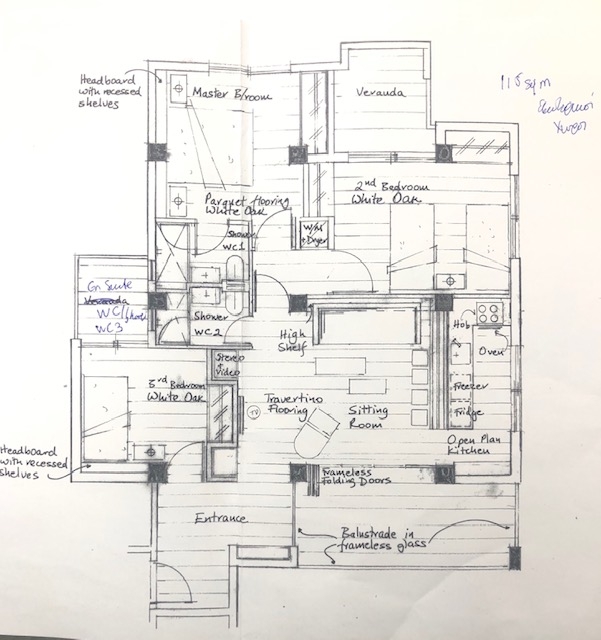 Headboard
with recessed
shelves
Master B/room
Veranda
115 sq m
Parquet flooring
White Oak
2nd Bedroom
White Oak
Shower
WC1
W/M
+ Dryer
En Suite
Veranda
WC/
WC3
Shower
WC2
High
Shelf
Hob
Oven
Stereo
+
Video
3rd Bedroom
White Oak
TV
Travertino
Flooring
Sitting
Room
Freezer
Fridge
Open Plan
Kitchen
Headboard
with recessed
shelves
Frameless
Folding Doors
Entrance
Balustrade in
frameless glass